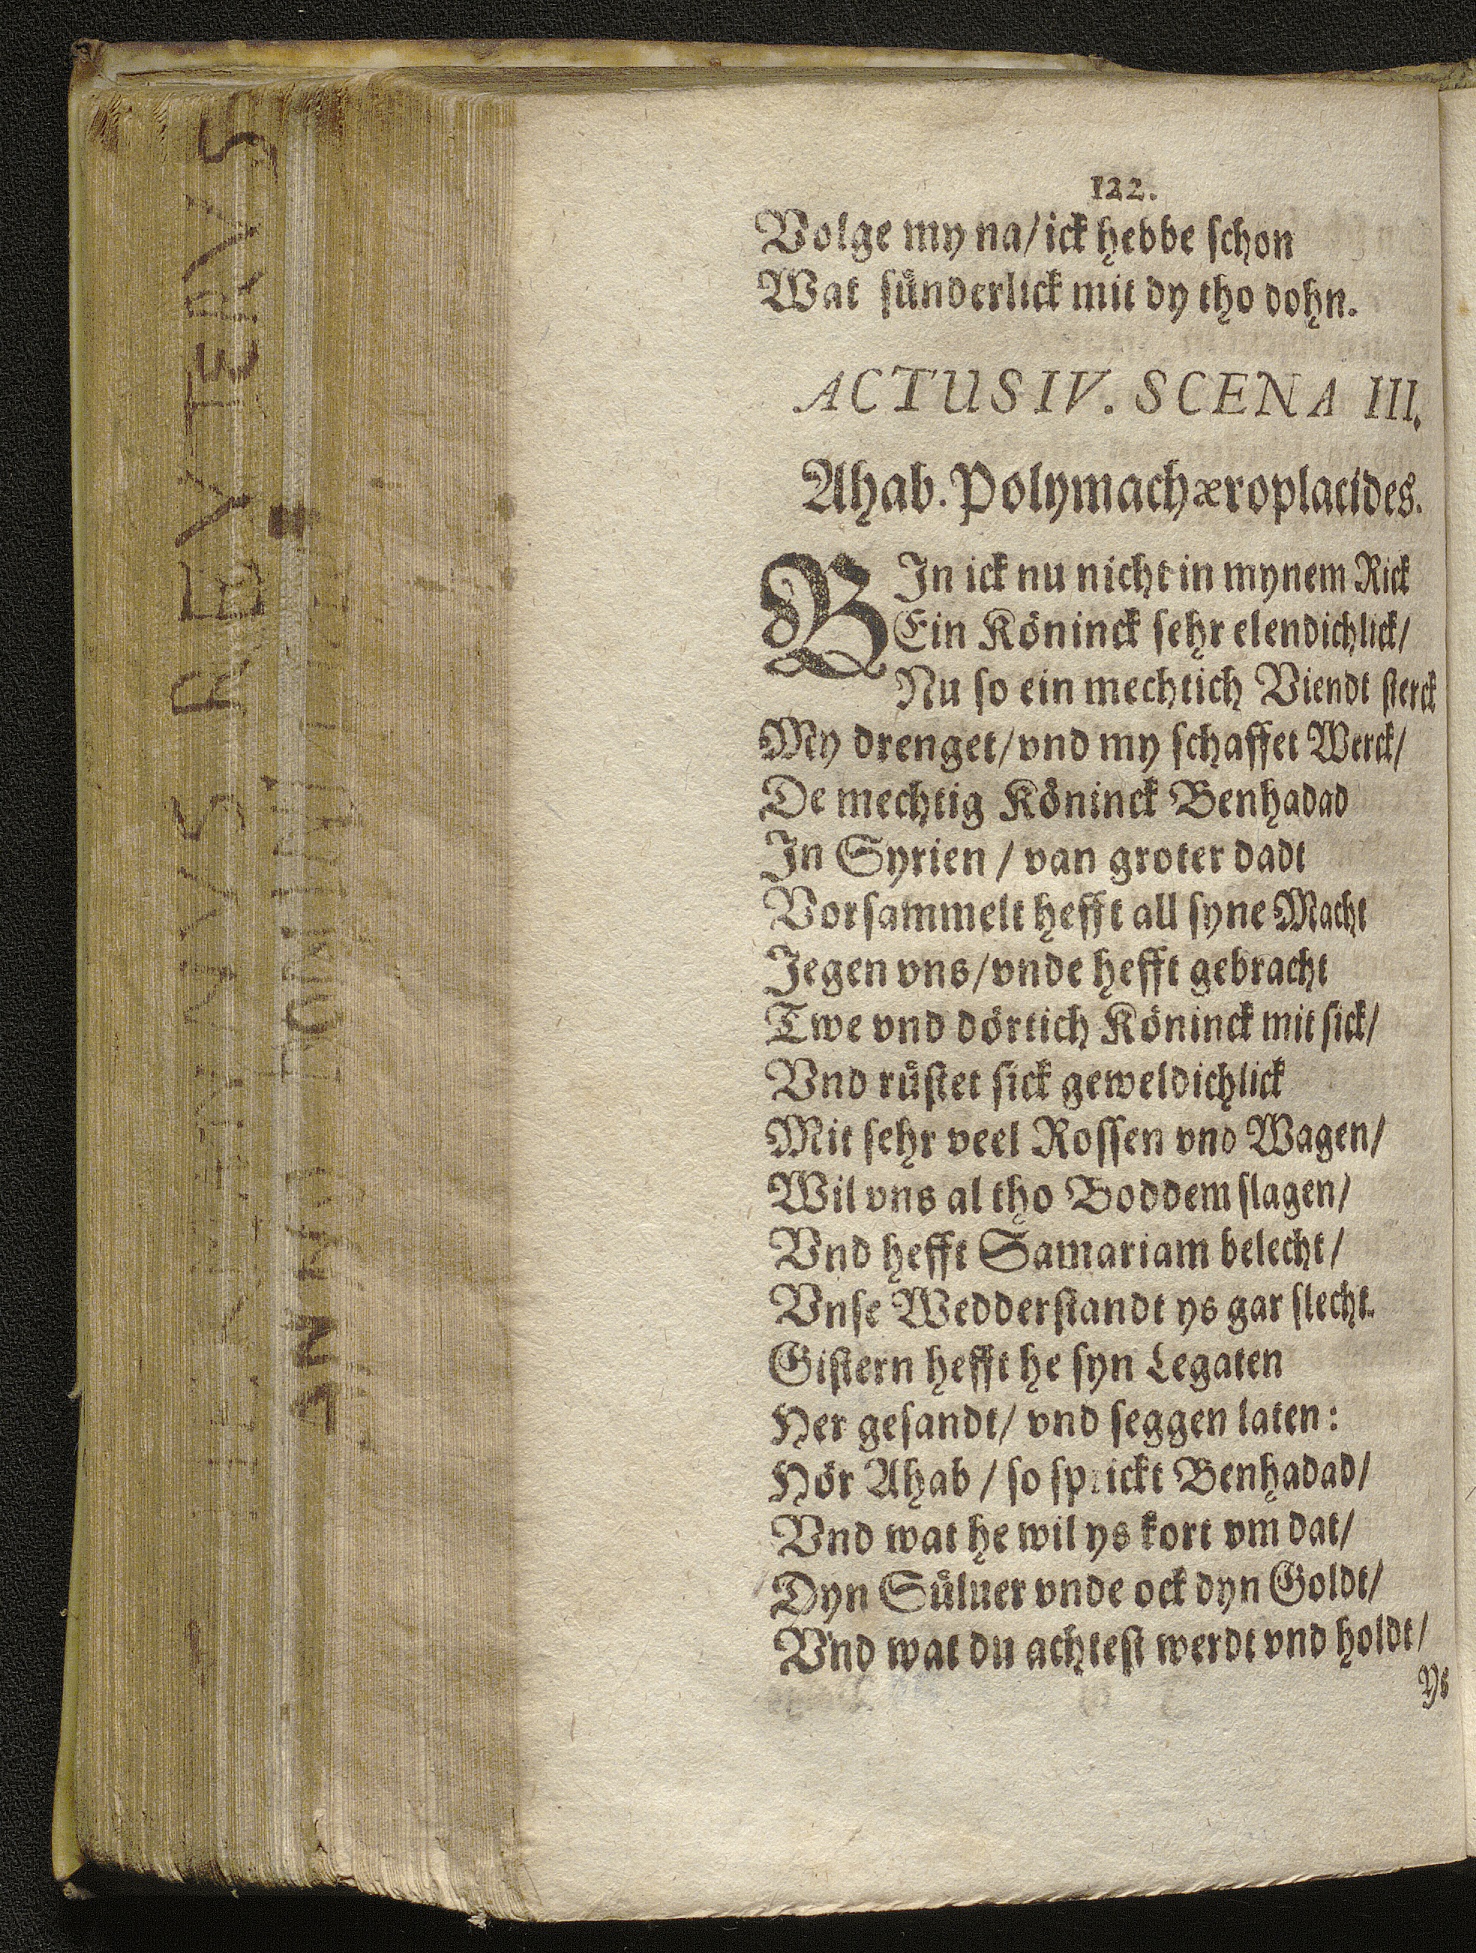 122.
Volge my na/ick hebbe schon
Wat sünderlick mit dy tho dohn.
ACTUS IV. SCENA III.
Ahab. Polymachæroplacides.
BIn ick nu nicht in mynem Rick
Ein Köninck sehr elendichlick/
Nu so ein mechtich Viendt sterck
My drenget/vnd my schaffet Werck/
De mechtig Köninck Benhadad
In Syrien / van groter dadt
Vorsammelt hefft all syne Macht
Jegen vns/vnde hefft gebracht
Twe vnd dörtich Köninck mit sick/
Vnd rüstet sick geweldichlick
Mit sehr veel Rossen vnd Wagen/
Wil vns al tho Boddem slagen/
Vnd hefft Samariam belecht/
Vnse Wedderstandt ys gar slecht.
Gistern hefft he syn Legaten
Her gesandt/ vnd seggen laten:
Hör Ahab / so sprickt Benhadad/
Vnd wat he wil ys kort vm dat/
Dyn Süluer vnde ock dyn Goldt/
Vnd wat du achtest werdt vnd holdt/
Ys
REVTERVS
ANNO DOMINI